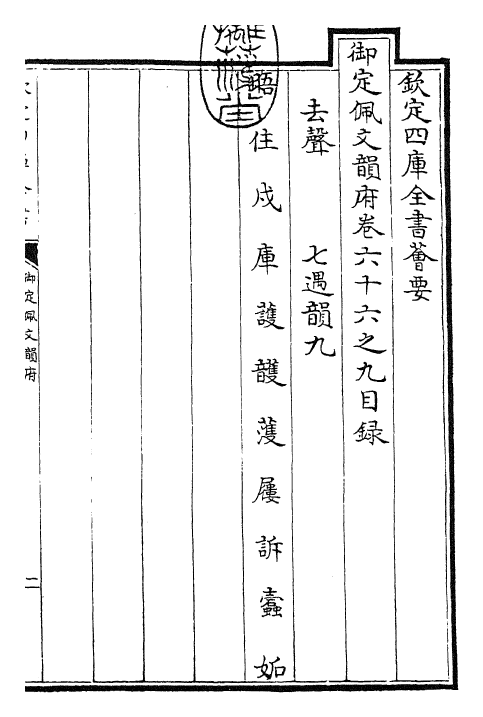 欽定四庫全書薈要
御定佩文韻府卷六十六之九目録
去聲　七遇韻九
住戍庫護頀濩屨訴蠹妬
御定佩文韻府
二